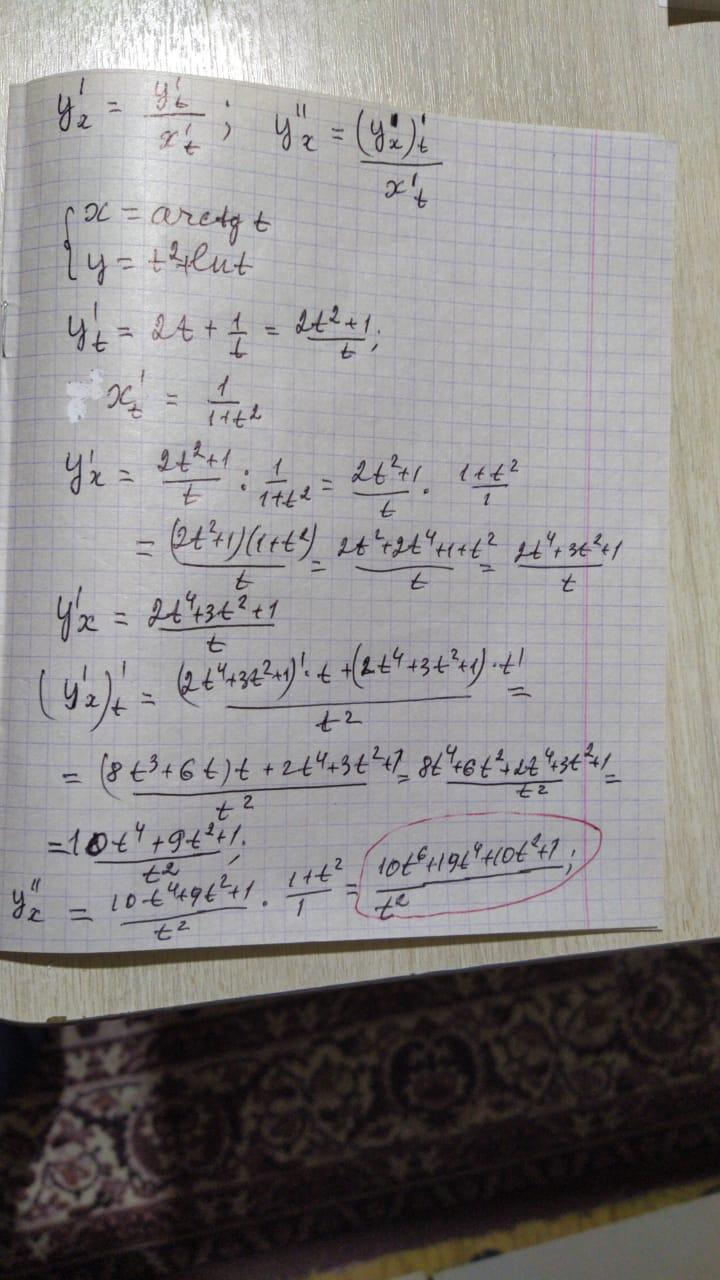 y'ₓ = y'ₜ / x'ₜ ; y''ₓ = (y'ₓ)'ₜ / x'ₜ
{ x = arctg t
y = t²+ln t
y'ₜ = 2t + 1/t = (2t²+1)/t ;
x'ₜ = 1/(1+t²)
y'ₓ = (2t²+1)/t : 1/(1+t²) = (2t²+1)/t · (1+t²)/1
= (2t²+1)(1+t²)/t = (2t²+2t⁴+1+t²)/t = (2t⁴+3t²+1)/t
y'ₓ = (2t⁴+3t²+1)/t
(y'ₓ)'ₜ = ((2t⁴+3t²+1)'·t+(2t⁴+3t²+1)·t')/t² =
= ((8t³+6t)t+2t⁴+3t²+1)/t² = (8t⁴+6t²+2t⁴+3t²+1)/t² =
= (10t⁴+9t²+1)/t² ;
y''ₓ = (10t⁴+9t²+1)/t² · (1+t²)/1 = (10t⁶+19t⁴+10t²+1)/t² ;